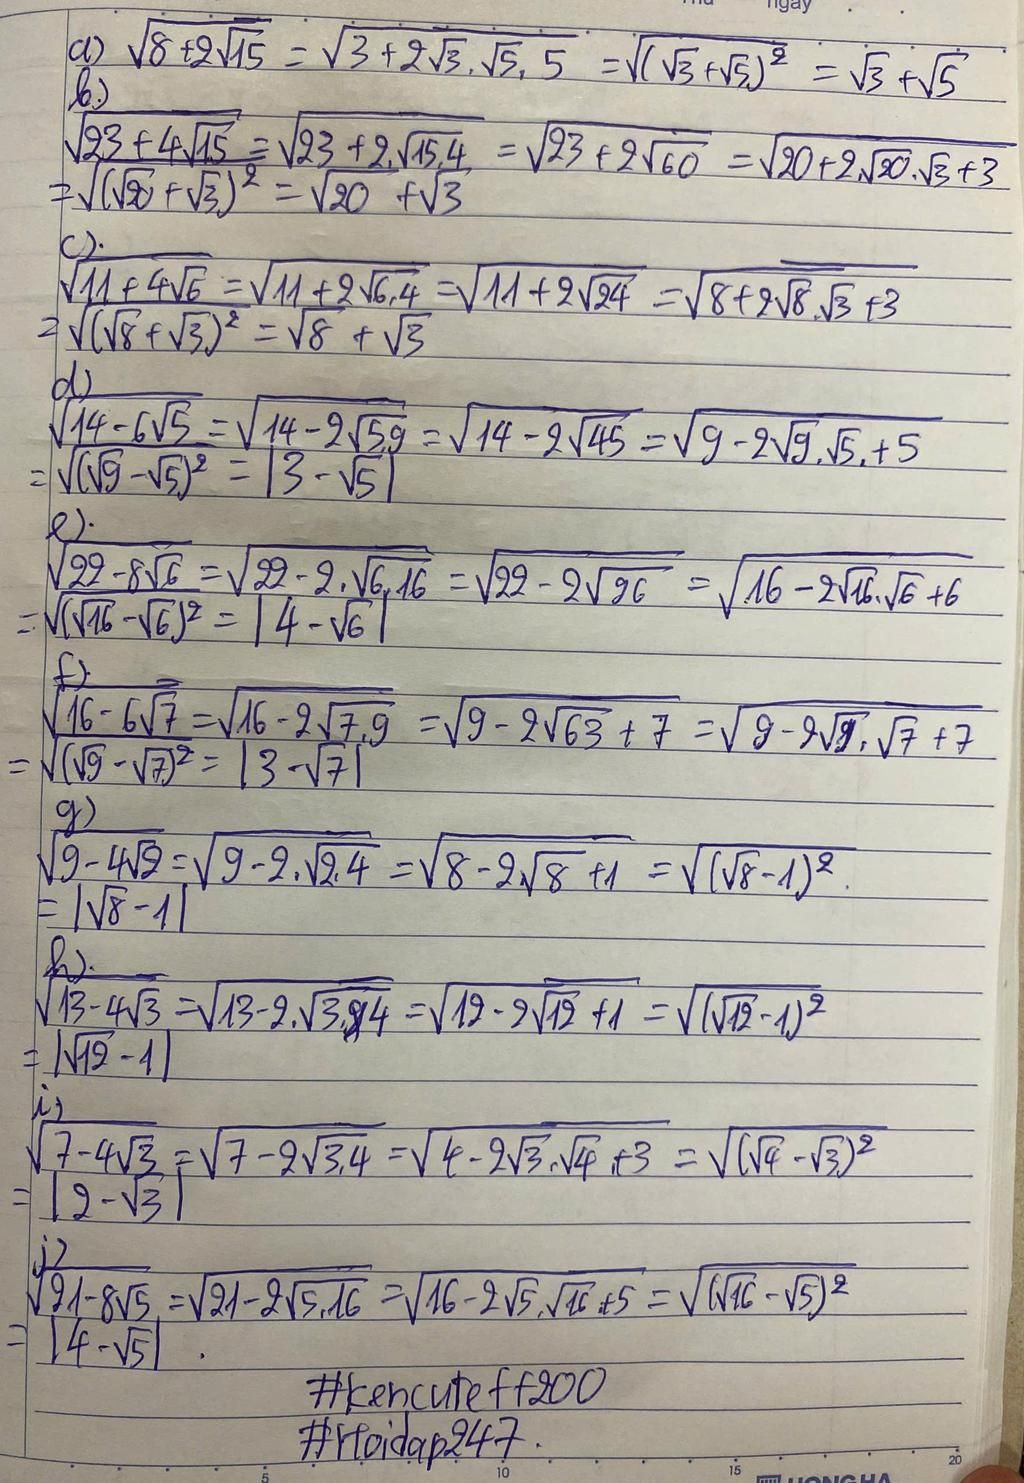 ngày
a) √8+2√15 = √3+2√3.√5.5 = √(√3+√5)² = √3+√5
b)
√23+4√15 = √23+2.√15.4 = √23+2√60 = √20+2.√20.√3+3
= √(√20+√3)² = √20 +√3
c).
√11+4√6 = √11+2√6.4 = √11+2√24 = √8+2√8.√3+3
= √(√8+√3)² = √8 + √3
d)
√14-6√5 = √14-2√5.9 = √14-2√45 = √9-2√9.√5.+5
= √(√9-√5)² = |3-√5|
e).
√22-8√6 = √22-2.√6.16 = √22-2√96 = √16-2√16.√6+6
= √(√16-√6)² = |4-√6|
f).
√16-6√7 = √16-2√7.9 = √9-2√63+7 = √9-2√9.√7+7
= √(√9-√7)² = |3-√7|
g)
√9-4√2 = √9-2.√2.4 = √8-2.√8+1 = √(√8-1)².
= |√8-1|
h).
√13-4√3 = √13-2.√3.4 = √12-2√12+1 = √(√12-1)²
= |√12-1|
i)
√7-4√3 = √7-2√3.4 = √4-2√3.√4.+3 = √(√4-√3)²
= |2-√3|
j)
√21-8√5 = √21-2√5.16 = √16-2√5.√16+5 = √(√16-√5)²
= |4-√5| .
#kencuteff200
#Hoidap247.
5 10 15 20
HONG HA